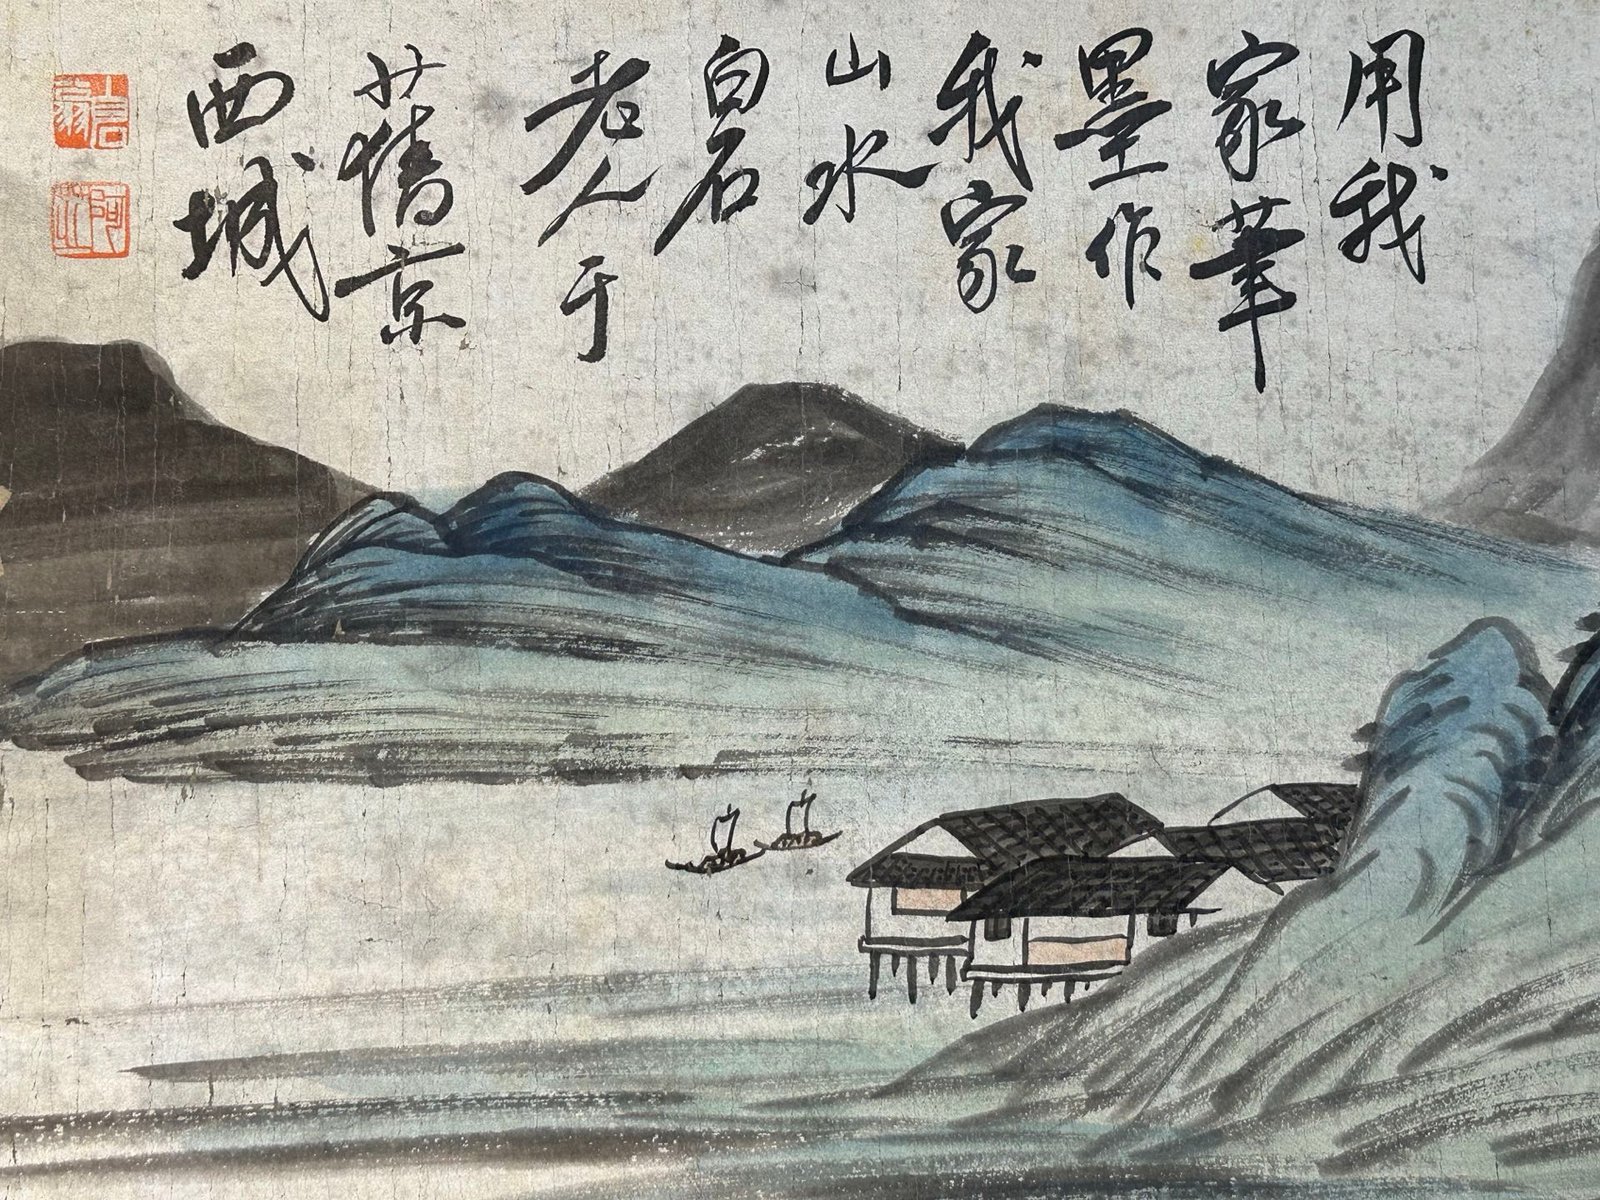 用我
家筆
墨作
我家
山水
白石
老人于
舊京
西城